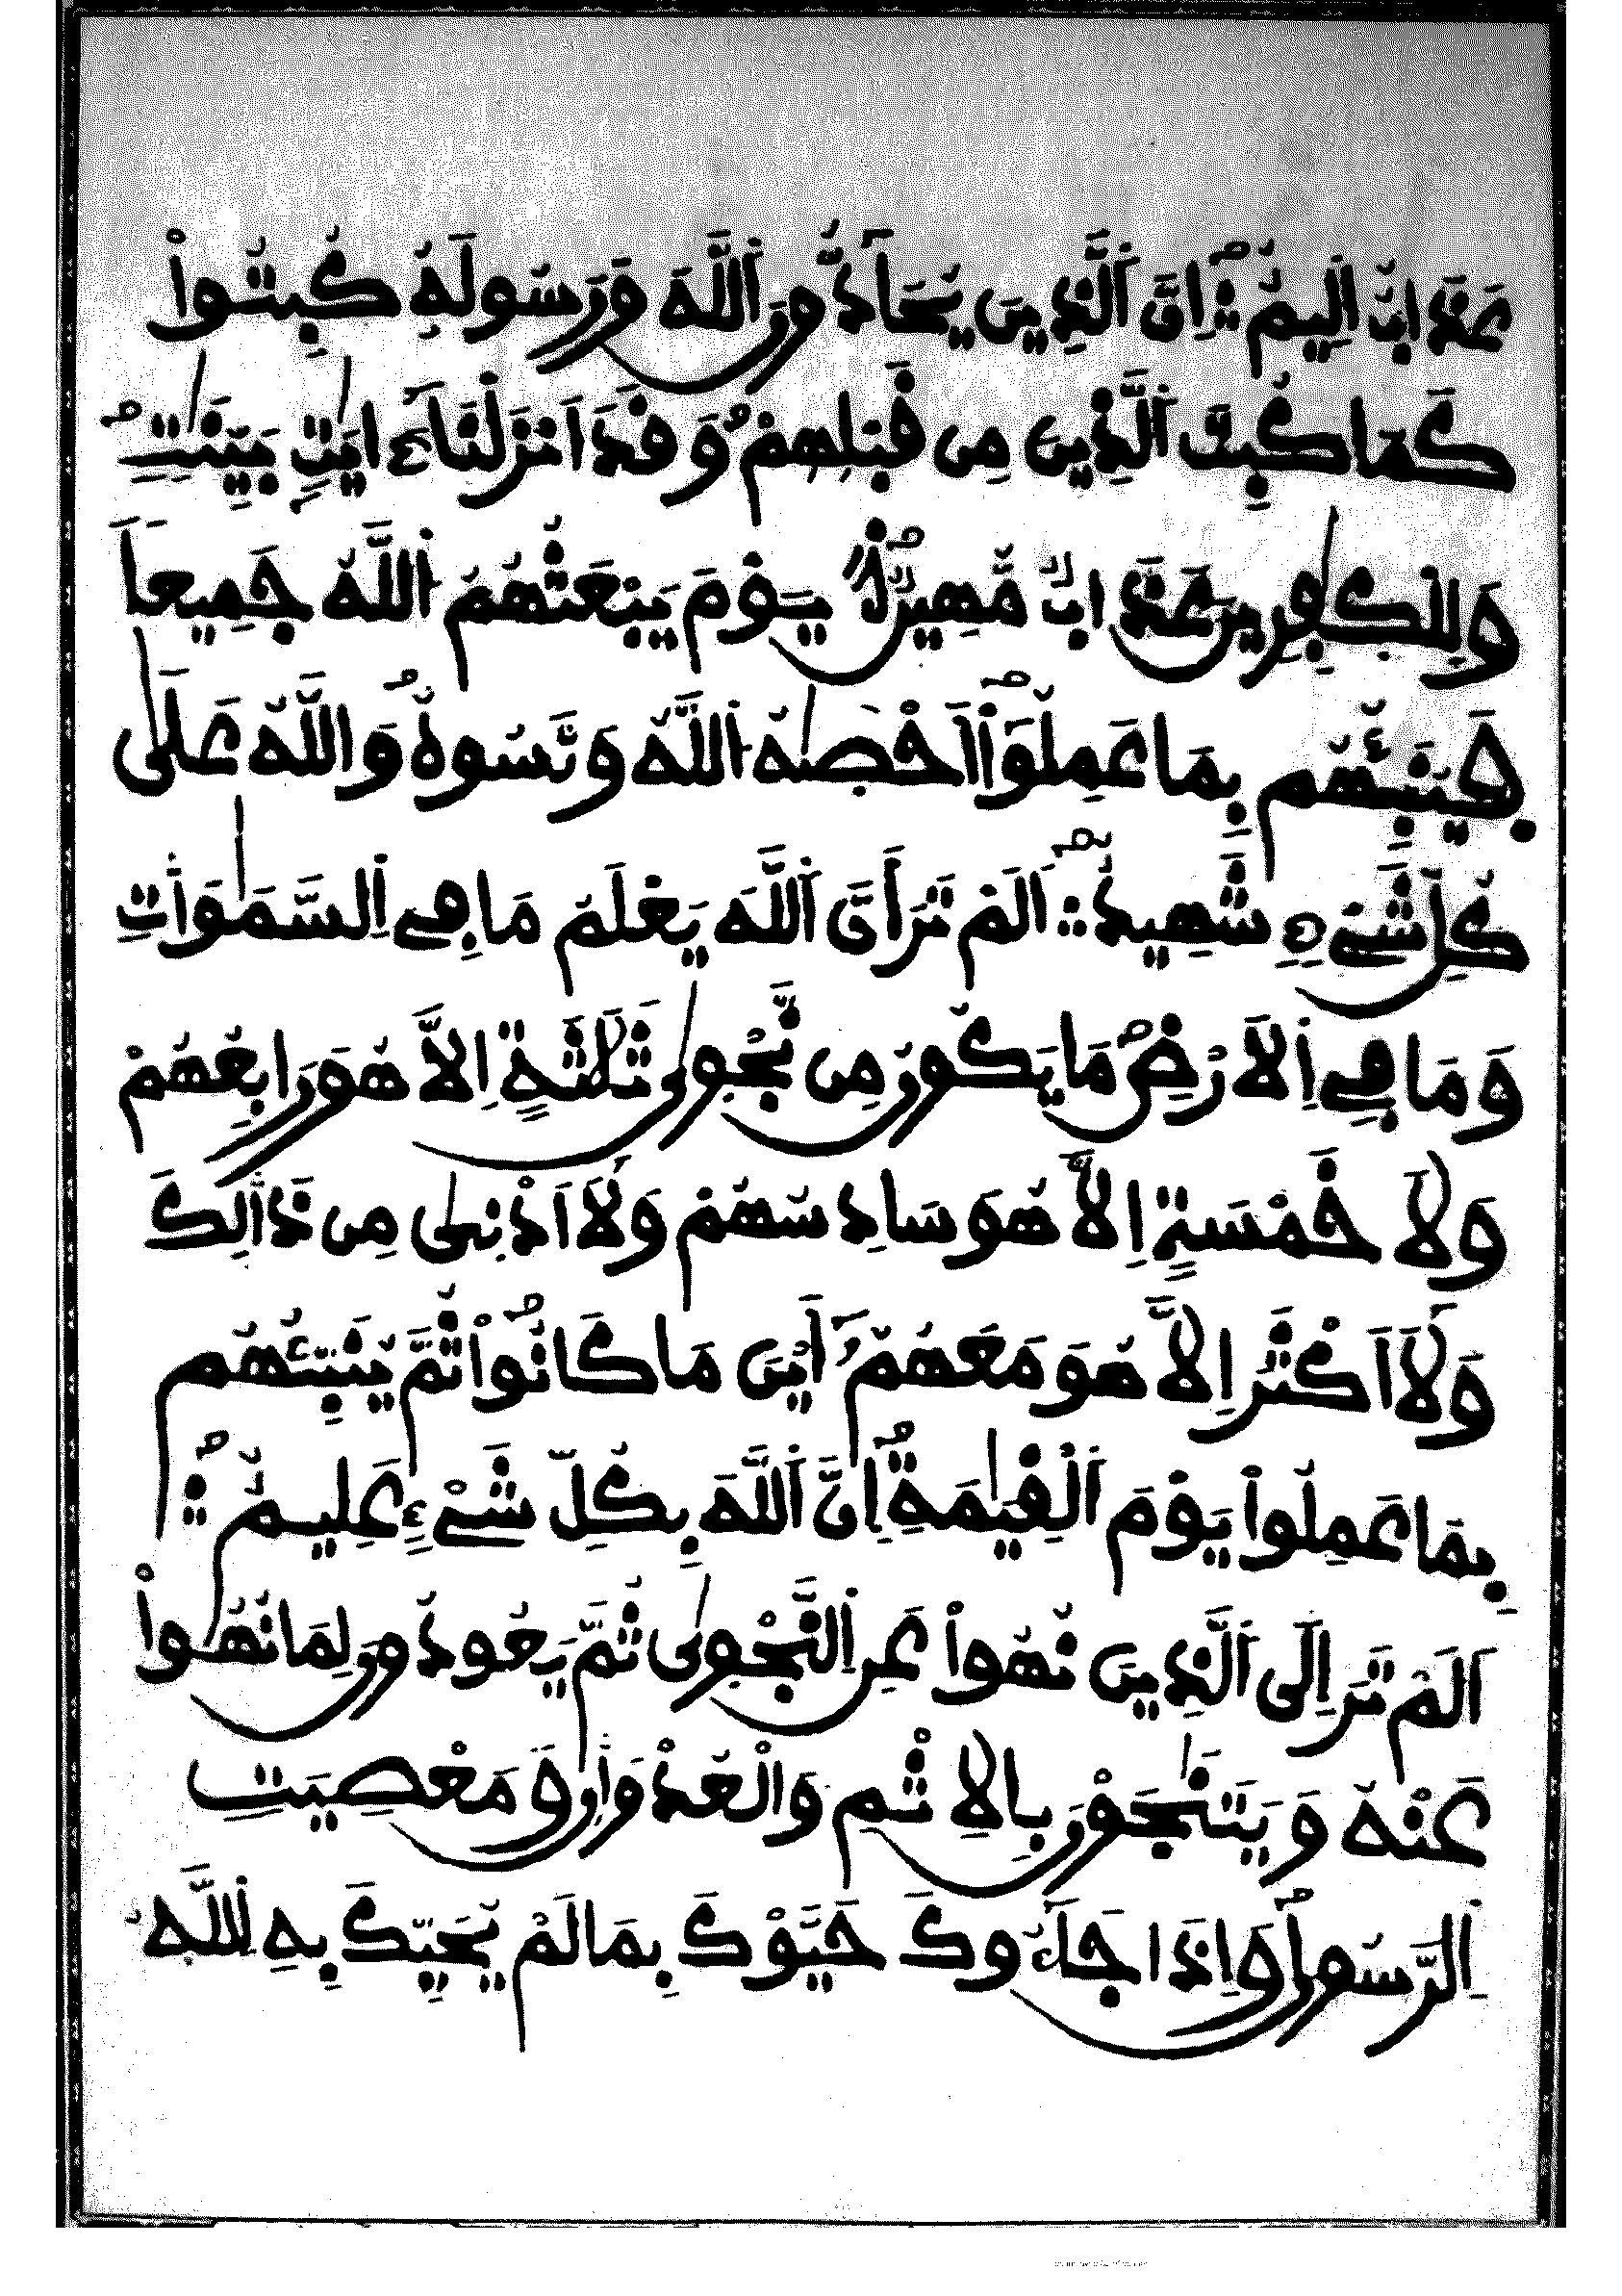 عَذَابٌ اَلِيمٌ اِنَّ اَلذِينَ يُحَآدُّونَ اَللَّهَ وَرَسُولَهُۥ كُبِتُواْ
كَمَا كُبِتَ اَلذِينَ مِن قَبْلِهِمْ وَقَدَ اَنزَلْنَآ ءَايَٰتِۢ بَيِّنَٰتٖ
وَلِلْكٰفِرِينَ عَذَابٞ مُّهِينٞ يَوْمَ يَبْعَثُهُمُ اُللَّهُ جَمِيعاٗ
فَيُنَبِّئُهُم بِمَا عَمِلُوٓاْ أَحْصَىٰهُ اُللَّهُ وَنَسُوهُ وَاللَّهُ عَلَىٰ
كُلِّ شَيْءٖ شَهِيدٌ اَلَمْ تَرَ أَنَّ اَللَّهَ يَعْلَمُ مَا فِے اِلسَّمَٰوَٰتِ
وَمَا فِے اِلَارْضِ مَا يَكُونُ مِن نَّجْوَىٰ ثَلَٰثَةٍ اِلَّا هُوَ رَابِعُهُمْ
وَلَا خَمْسَةٍ اِلَّا هُوَ سَادِسُهُمْ وَلَآ أَدْنَىٰ مِن ذَٰلِكَ
وَلَآ أَكْثَرَ إِلَّا هُوَ مَعَهُمُۥٓ أَيْنَ مَا كَانُواْ ثُمَّ يُنَبِّئُهُم
بِمَا عَمِلُواْ يَوْمَ اَلْقِيَٰمَةِ إِنَّ اَللَّهَ بِكُلِّ شَيْءٍ عَلِيمٌ
اَلَمْ تَرَ إِلَى اَلذِينَ نُهُواْ عَنِ اِلنَّجْوَىٰ ثُمَّ يَعُودُونَ لِمَا نُهُواْ
عَنْهُ وَيَتَنَٰجَوْنَ بِالِاثْمِ وَالْعُدْوَٰنِ وَمَعْصِيَتِ
اِلرَّسُولِ وَإِذَا جَآءُوكَ حَيَّوْكَ بِمَا لَمْ يُحَيِّكَ بِهِ اِللَّهُ